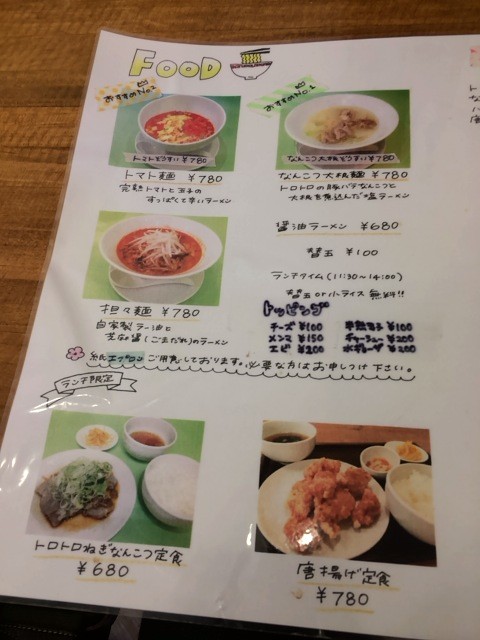 FOOD
おすすめNo.2
おすすめNo.1
トマトどうすい ¥780
なんこつ大根どうすい ¥780
トマト麺 ¥780
完熟トマトと玉子の
すっぱくて辛いラーメン
なんこつ大根麺 ¥780
トロトロの豚バラなんこつと
大根を煮込んだ塩ラーメン
醤油ラーメン ¥680
替玉 ¥100
ランチタイム (11:30〜14:00)
替玉 or 小ライス 無料!!
担々麺 ¥780
自家製ラー油と
芝麻醤(ごまだれ)のラーメン
トッピング
チーズ ¥100
メンマ ¥150
エビ ¥200
半熟玉子 ¥100
チャーシュー ¥200
¥200
紙エプロンご用意しております。必要な方はお申しつけ下さい。
ランチ限定
トロトロねぎなんこつ定食
¥680
唐揚げ定食
¥780